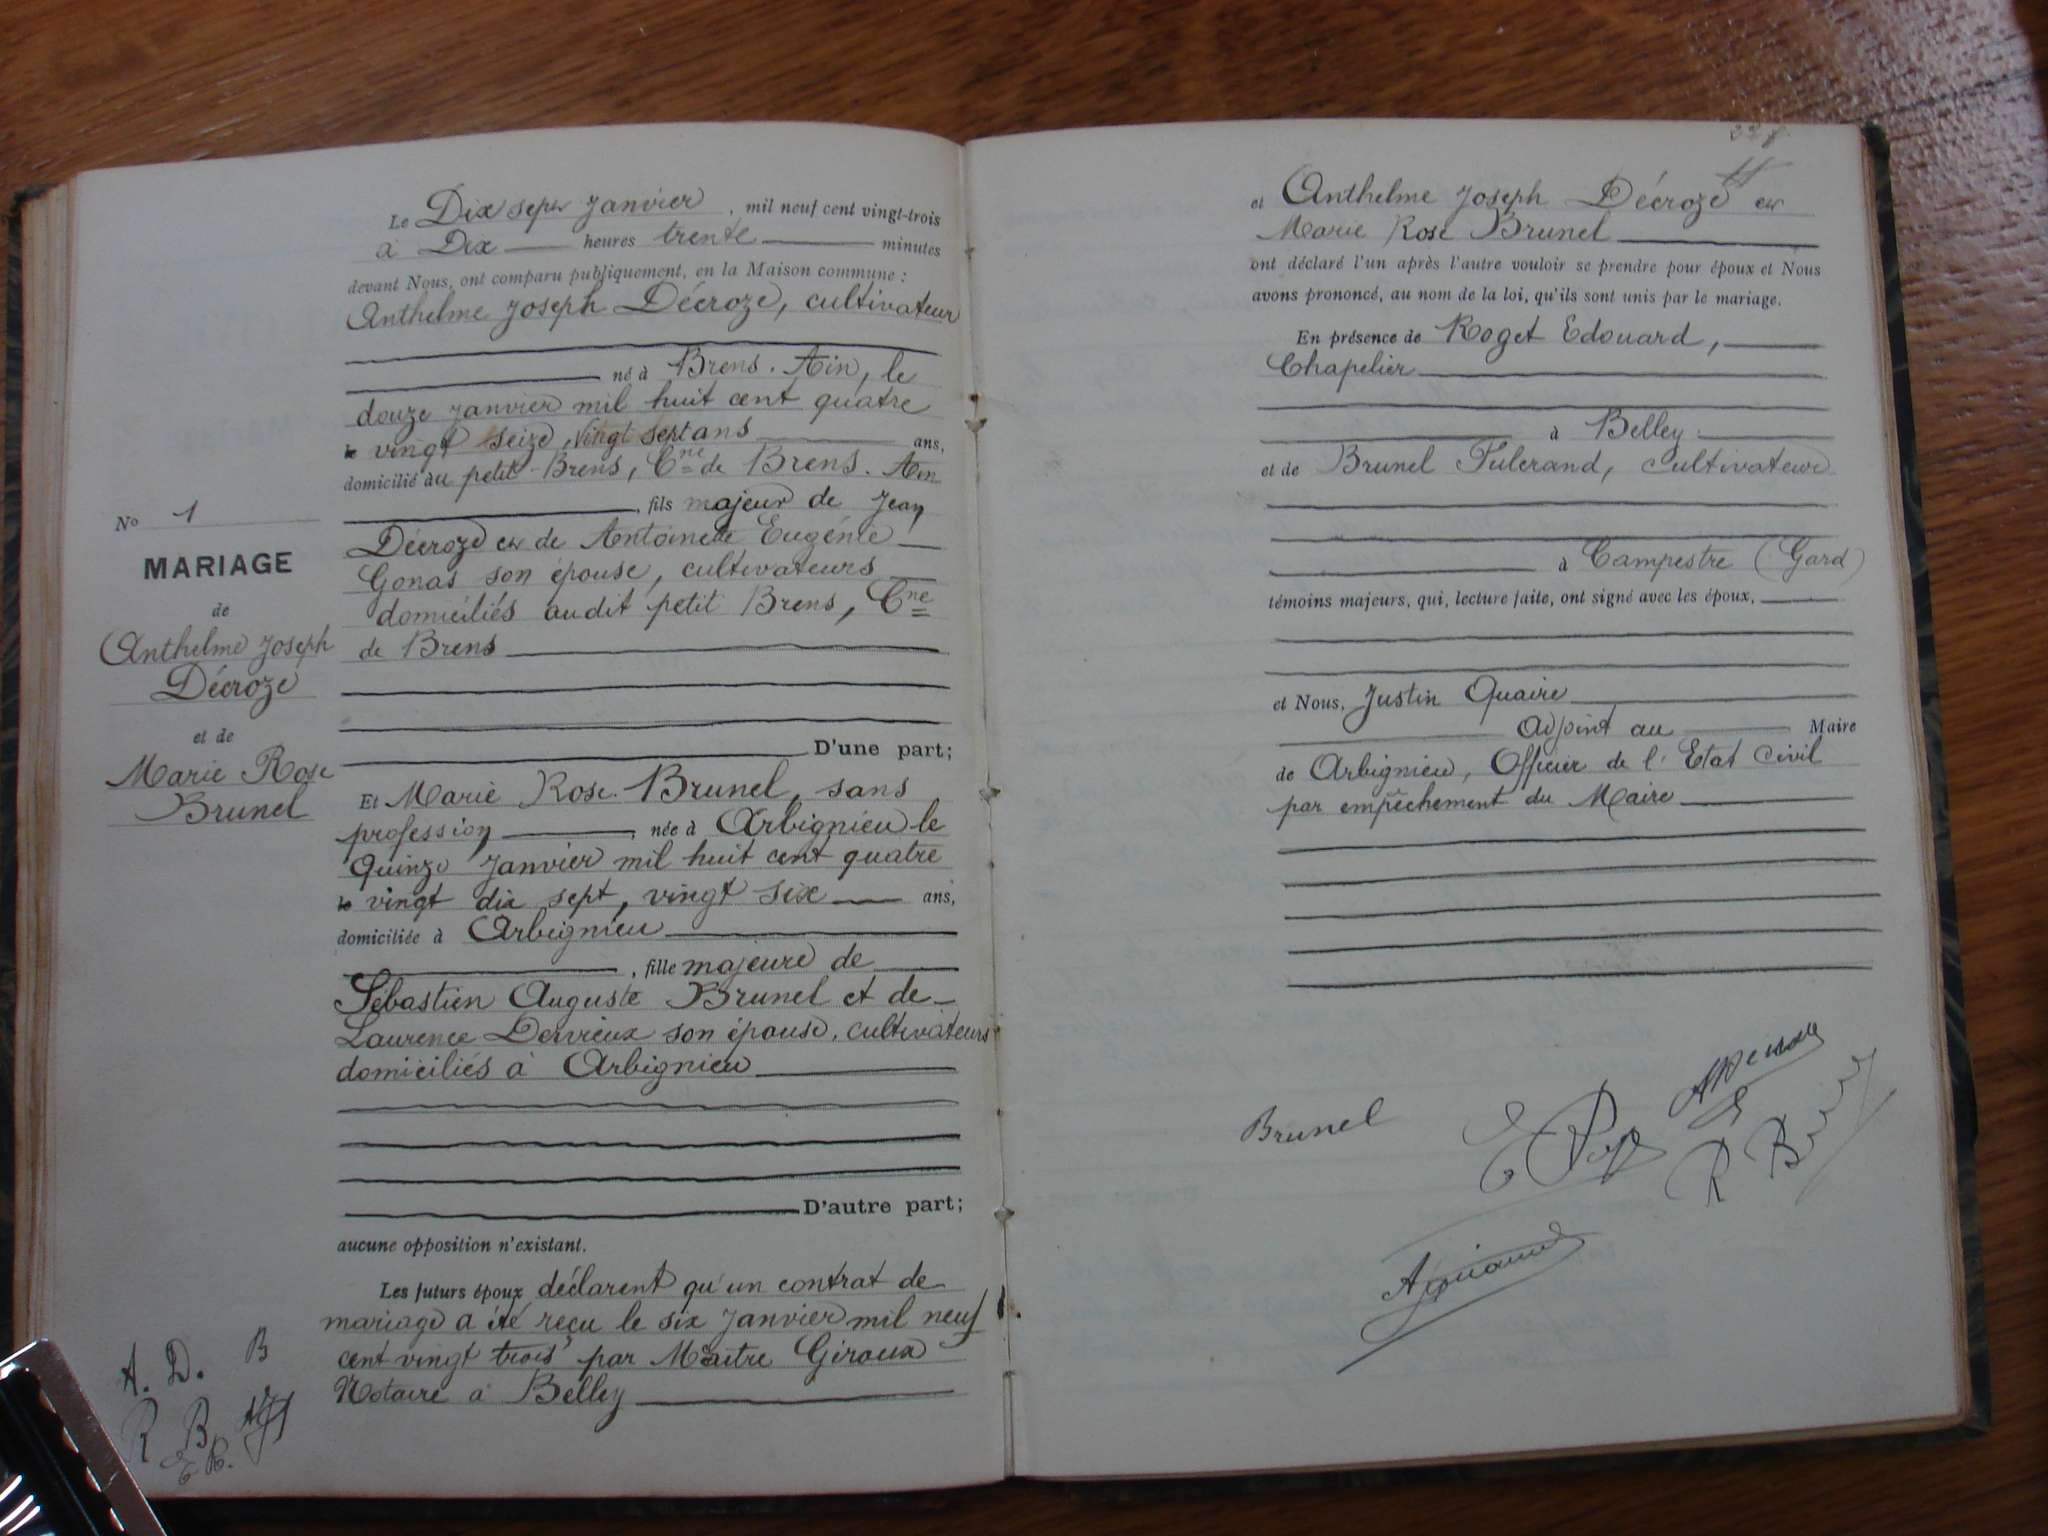 No 1
MARIAGE
de
Anthelme Joseph
Décroze
et de
Marie Rose
Brunel
A. D. B
R B
E. R.
Le Dix sept Janvier, mil neuf cent vingt-trois
à Dix heures trente minutes
devant Nous, ont comparu publiquement, en la Maison commune :
Anthelme Joseph Décroze, cultivateur
né à Brens. Ain, le
douze janvier mil huit cent quatre
le vingt seize, vingt sept ans ans,
domicilié au petit-Brens, Cne de Brens. Ain
, fils majeur de Jean
Décroze et de Antoinette Eugénie
Gonas son épouse, cultivateurs
domiciliés audit petit Brens, Cne
de Brens
D'une part;
Et Marie Rose Brunel, sans
profession, née à Arbignieu le
quinze Janvier mil huit cent quatre
le vingt dix sept, vingt six ans,
domiciliée à Arbignieu
, fille majeure de
Sébastien Auguste Brunel et de
Laurence Dervieux son épouse, cultivateurs
domiciliés à Arbignieu
D'autre part;
aucune opposition n'existant.
Les futurs époux déclarent qu'un contrat de
mariage a été reçu le six Janvier mil neuf
cent vingt trois par Maître Giroux
Notaire à Belley
et Anthelme Joseph Décroze et
Marie Rose Brunel
ont déclaré l'un après l'autre vouloir se prendre pour époux et Nous
avons prononcé, au nom de la loi, qu'ils sont unis par le mariage.
En présence de Roget Edouard,
Chapelier
à Belley
et de Brunel Fulcrand, cultivateur
à Campestre (Gard)
témoins majeurs, qui, lecture faite, ont signé avec les époux,
et Nous, Justin Quaire
Adjoint au Maire
de Arbignieu, Officier de l'Etat Civil
par empêchement du Maire
Brunel